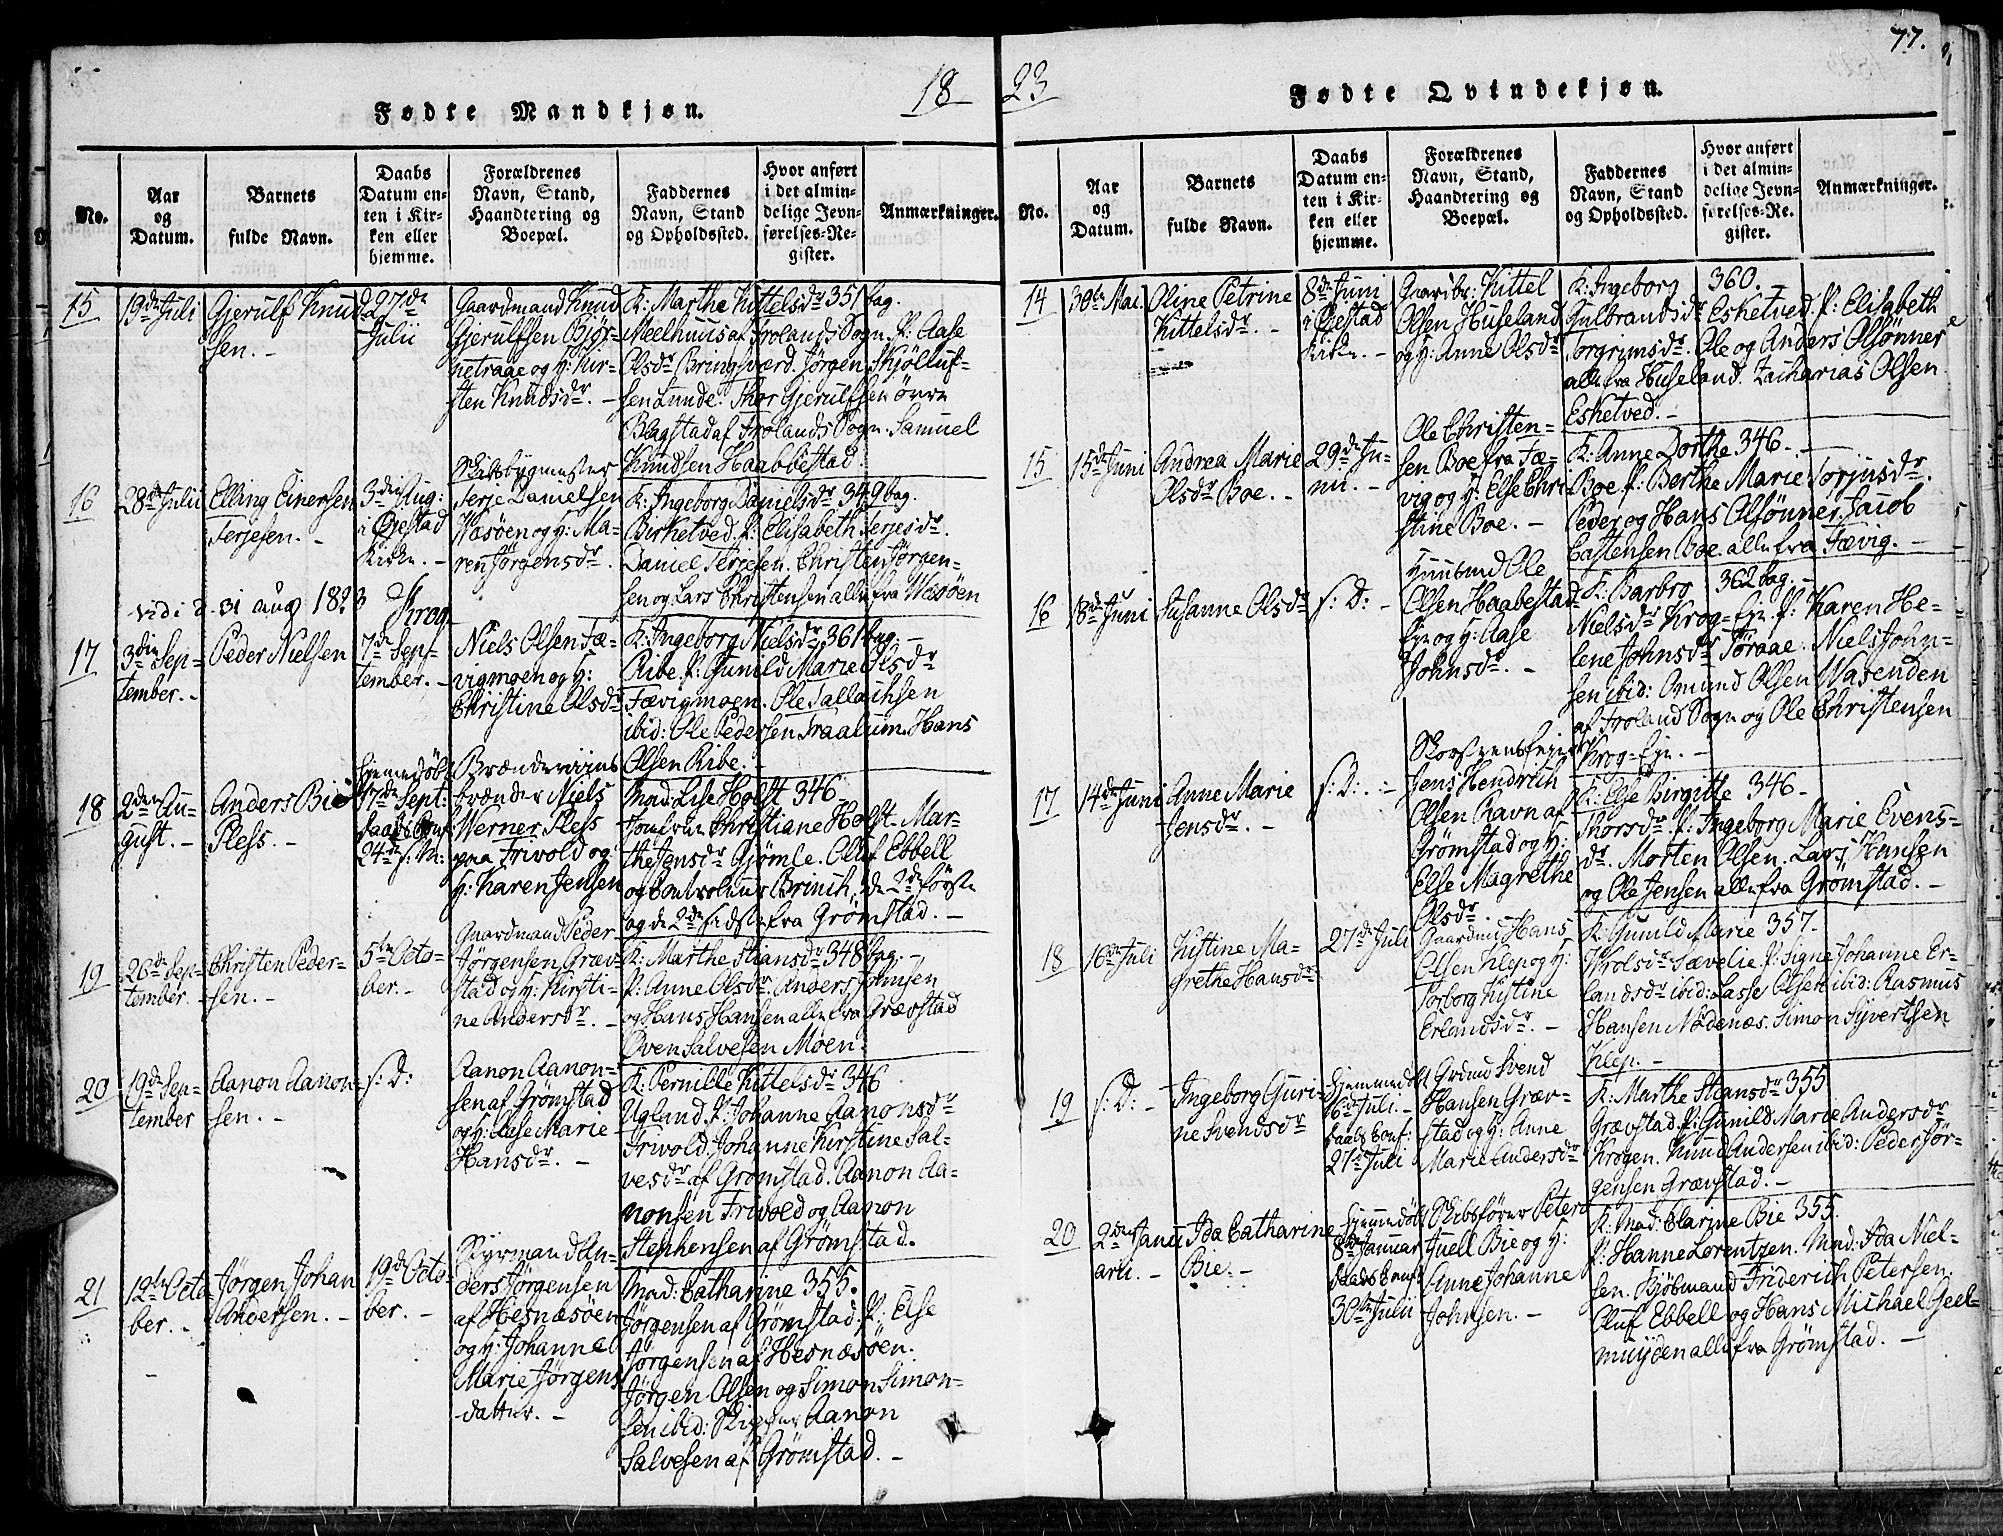 18
Fødte Mandkjøn.
No.
Aar og Datum.
Barnets fulde Navn.
Daabs Datum enten i Kirken eller hjemme.
Forældrenes Navn, Stand, Haandtering og Boepæl.
Faddernes Navn, Stand og Opholdssted.
Hvor anført i det almindelige Jevnførelses-Register.
Anmærkninger.
15
19de Juli
Gjerulf Knud-
sen. -
27de
Julii
Gaardmand Knud
Gjerulfsen Bjor-
netraae og H: Kir-
sten Knudsdr. -
K: Marthe Kittelsdr 351 bag.
Meelhuus af Frolands Sogn. P: Aase
Olsdr Bringsværd. Jørgen Skjølluf-
sen Lunde. Thor Gjerulfsen övre
Blagstad af Frolands Sogn. Samuel
Knudsen Haabbestad.
16
28de Julii
Elling Einersen
Terjesen. -
3die Aug:
i Øiestad
Kirke. -
Skibsbygmester
Terje Danielsen
Wasøen og H: Ma-
ren Jørgensdr.
K: Ingeborg Danielsdr 349 bag.
Birketved. P: Elisabeth Terjesdr.
Daniel Terjesen. Christen Jørgen-
sen og Lars Christensen alle fra Wasøen
Vidi d. 31 aug 1823 Krog
17
3die Sep-
tember. -
Peder Nielsen
7de Sep-
tember. -
Niels Olsen Fæ-
vigmoen og H:
Christine Olsdr
K: Ingeborg Nielsdr 361 bag. -
Ribe. P: Gunild Marie Olsdr
Fævigmoen. Ole Tallachsen
ibid: Ole Pedersen Traalum. Hans
Olsen Ribe. -
18
2den Au-
gust. -
Anders Bie
Pless. -
Hjemmedøbt
17de Sept:
Daabs Conf:
24de s. M:
Brændeviins
brænder Niels
Werner Pless
paa Frivold og
H: Karen Jensen
Mad: Lise Holst 346
Jomfrue Christiane Holst. Mar-
the Jensdr Gjömle. Oluf Ebbell
og Controlleur Brinch, de 2de første
og de 2de sidste fra Grømstad. -
19
26de Sep-
tember. -
Christen Peder-
sen. -
5te Octo-
ber. -
Gaardmand Peder
Jørgensen Græv-
stad og H: Kirsti-
ne Andersdr. -
K: Marthe Stiansdr 348 bag. -
P: Anne Olsdr. Anders Johnsen
og Hans Hansen alle fra Grævstad
Even Salvesen Møen.
20
19de Sep-
tember
Aanon Aanon-
sen. -
s: D:
Aanon Aanon-
sen af Grømstad
og H: Else Marie
Hansdr. -
K: Pernille Kittelsdr 346
Ugland. P: Johanne Aanonsdr
Frivold. Johanne Kirstine Sal-
vesdr af Grømstad. Aanon Aa-
nonsen Frivold og Aanon
Stephensen af Grømstad.
21
12te Octo-
ber. -
Jørgen Johan
Andersen. -
19de Octo-
ber. -
Styrmand An-
ders Jørgensen
af Hesnæsøen
og H: Johanne
Marie Jørgens-
datter. -
Mad: Catharine 355.
Jørgensen af Grømstad. P: Else
Jørgensen af Hesnæsøen.
Jørgen Olsen og Simon Simon-
sen ibid: Skipper Aanon
Salvesen af Grømstad. -
77.
23
Fødte Qvindekjøn.
No.
Aar og Datum.
Barnets fulde Navn.
Daabs Datum enten i Kirken eller hjemme.
Forældrenes Navn, Stand, Haandtering og Boepæl.
Faddernes Navn, Stand og Opholdssted.
Hvor anført i det almindelige Jevnførelses-Register.
Anmærkninger.
14
30te Mai.
Oline Petrine
Kittelsdr. -
8de Juni
i Øiestad
Kirke. -
Gaardbr: Kittel
Olsen Huseland
og H: Anne Olsdr
K: Ingeborg 360. -
Gulbrandsdr Esketved. P: Elisabeth
Torgrimsdr. Ole og Anders Olsønner
alle fra Huseland. Zacharias Olsen
Esketved. -
15
15de Juni
Andrea Marie
Olsdr Boe. -
29de Ju-
ni. -
Ole Christen-
sen Boe fra Fæ-
vig og H: Else Chri-
stine Boe. -
K: Anne Dorthe 346. -
Boe. P: Berthe Marie Torjusdr.
Peder og Hans Olsønner. Jacob
Castensen Boe alle fra Fævig. -
16
18de Juni
Susanne Olsdr
s: D: -
Huusmd Ole
Olsen Haabestad-
Eje og H: Aase
Johnsdr. -
K: Barbro 362 bag. -
Nielsdr Krog-Eje. P: Karen He-
lene Johnsdr Töraae. Niels John-
sen ibid: Omund Olsen Wasenden
af Froland Sogn og Ole Christensen
Krog-Eje. -
17
14de Juni
Anne Marie
Jensdr. -
s: D: -
Skorsteensfeier
Jens Hendrich
Olsen Ravn af
Grømstad og H:
Else Magrethe
Olsdr. -
K: Else Birgitte 346 -
Thorsdr. P: Ingeborg Marie Evens-
dr. Morten Olsen. Lars Hansen
og Ole Jensen alle fra Grømstad. -
18
16de Juli
Kistine Ma-
grethe Hansdr
27de Juli
Gaardmd Hans
Olsen Klep og H:
Torborg Kistine
Erlandsdr. -
K: Gunild Marie 357.
Wrolsdr Sævelie. P: Signe Johanne Er-
landsdr ibid: Lasse Olsen ibid: Rasmus
Hansen Nødenæs. Simon Syvertsen
Klep. -
19
s: D: -
Ingeborg Guri-
ne Svendsdr
Hjemmedøbt
16de Juli. -
Daabs Conf:
27de Juli
Grdmd Svend
Hansen Græv-
stad og H: Anne
Marie Andersdr
K: Marthe Stiansdr 355
Grævstad. P: Gunild Marie Andersdr
Krogen. Knud Andersen ibid: Peder Jør-
gensen Grævstad. -
20
2den Janu-
arii. -
Ida Catharine
Bie. -
Hjemmedøbt
8de Januar
Daabs Conf:
30te Julii
Skibsfører Peter
Juell Bie og H:
Anne Johanne
Johnsen. -
K: Mad: Clarine Bie 355.
P: Hanne Lorentzen. Mad: Ida Niel-
sen. Kjøbmand Friderich Petersen.
Oluf Ebbell og Hans Michael Geel-
muyden alle fra Grømstad. -